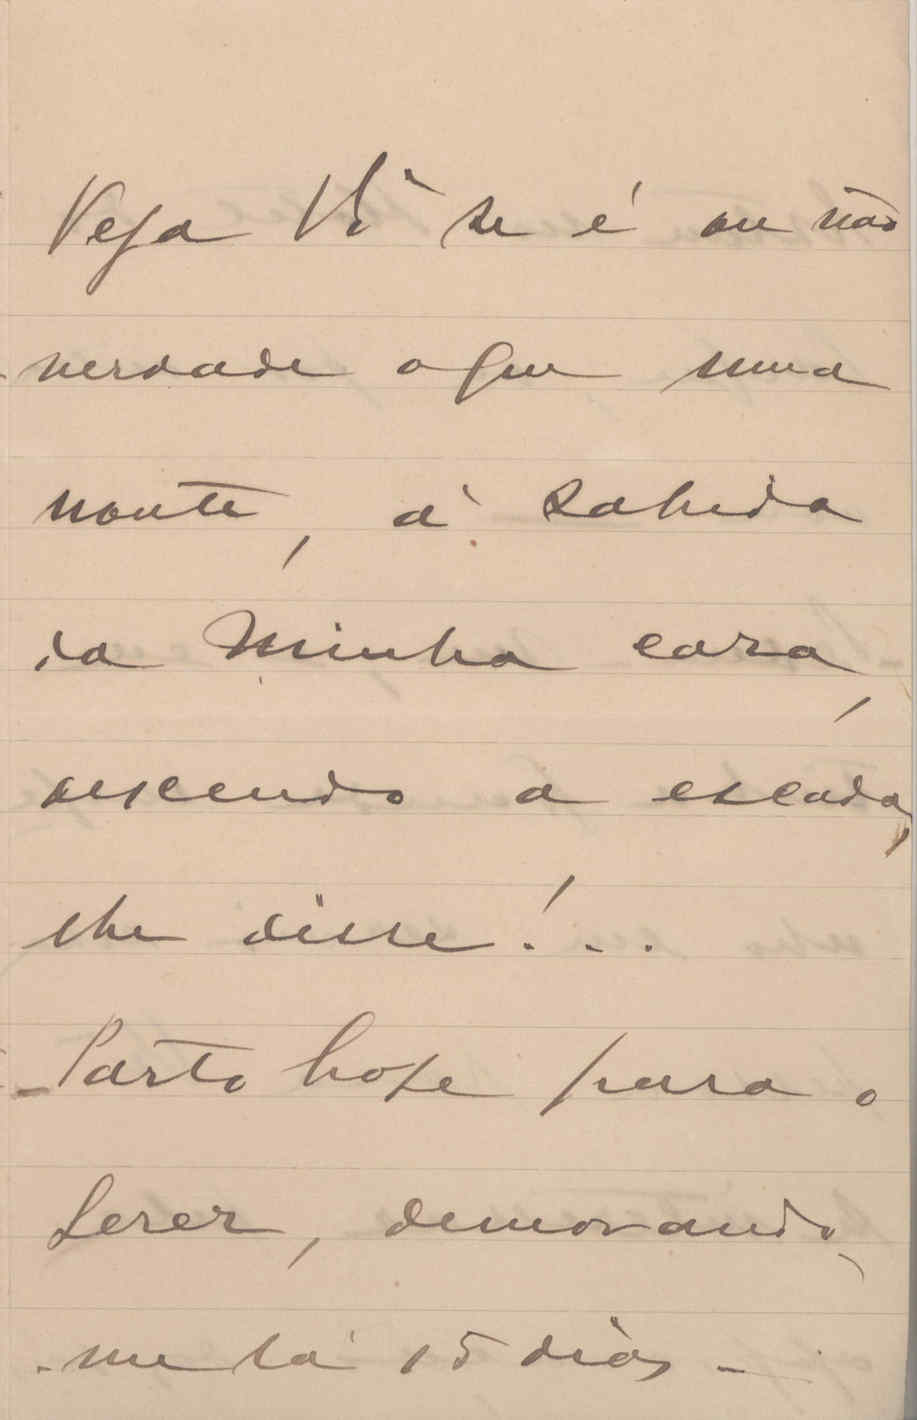 Veja V. se é ou não
verdade o que numa
noute, á sahida
da minha casa,
descendo a escada,
lhe disse!...
- Parto hoje para o
Gerez, demorando
-me lá 15 dias -